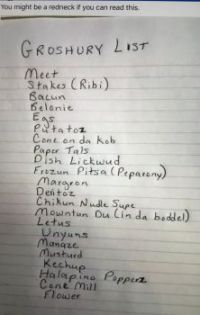 You might be a redneck if you can read this.
GROSHURY LIST
Meet
Stakes (Ribi)
Bacun
Belonie
Egs
Putatoz
Cone on da Kob
Paper Tals
Dish Lickwud
Frozun Pitsa (Peparony)
Margren
Deritoz
Chikun Nudle Supe
Mountun Du (in da boddel)
Letus
Unyuns
Manaze
Musturd
Kechup
Halapino Popperz
Cone Mill
Flower